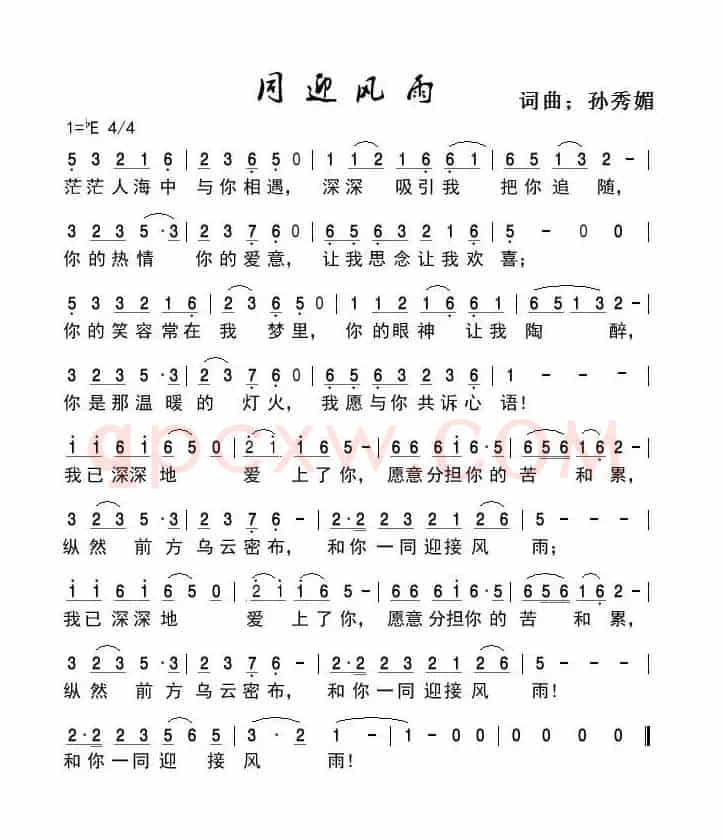 同迎风雨
词曲；孙秀媚
1=♭E 4/4
5 3 2 1 6 | 2 3 6 5 0 | 1 1 2 1 6 6 1 | 6 5 1 3 2 - |
茫茫人海中 与你相遇， 深深 吸引我 把你追随，
3 2 3 5 ·3 | 2 3 7 6 0 | 6 5 6 3 2 3 2 1 6 | 5 - 0 0 |
你的热情 你的爱意， 让我思念让我欢喜；
5 3 3 2 2 1 6 | 2 3 6 5 0 | 1 1 2 1 2 6 6 1 | 6 5 1 3 2 - |
你的笑容常在我 梦里， 你的眼神 让我陶 醉，
3 2 3 5 ·3 | 2 3 7 6 0 | 6 5 6 3 2 3 6 | 1 - - - |
你是那温暖的 灯火， 我愿与你共诉心语！
1 1 6 1 6 5 0 | 2 1 1 6 5 - | 6 6 6 6 1 6·5 | 6 5 6 1 6 2 - |
我已深深地 爱 上了你，愿意分担你的苦 和累，
3 2 3 5 ·3 | 2 3 7 6 - | 2·2 2 3 2 1 2 6 | 5 - - - |
纵然 前方乌云密布， 和你一同迎接风 雨；
1 1 6 1 6 5 0 | 2 1 1 6 5 - | 6 6 6 6 1 6·5 | 6 5 6 1 6 2 - |
我已深深地 爱 上了你，愿意分担你的苦 和累，
3 2 3 5 ·3 | 2 3 7 6 - | 2·2 2 3 2 1 2 6 | 5 - - - |
纵然 前方乌云密布， 和你一同迎接风 雨！
2·2 2 3 2 6 5 | 3 · 2 | 1 - | 1 - 0 0 | 0 0 0 0
和你一同迎 接风 雨！
gpcxw.COM